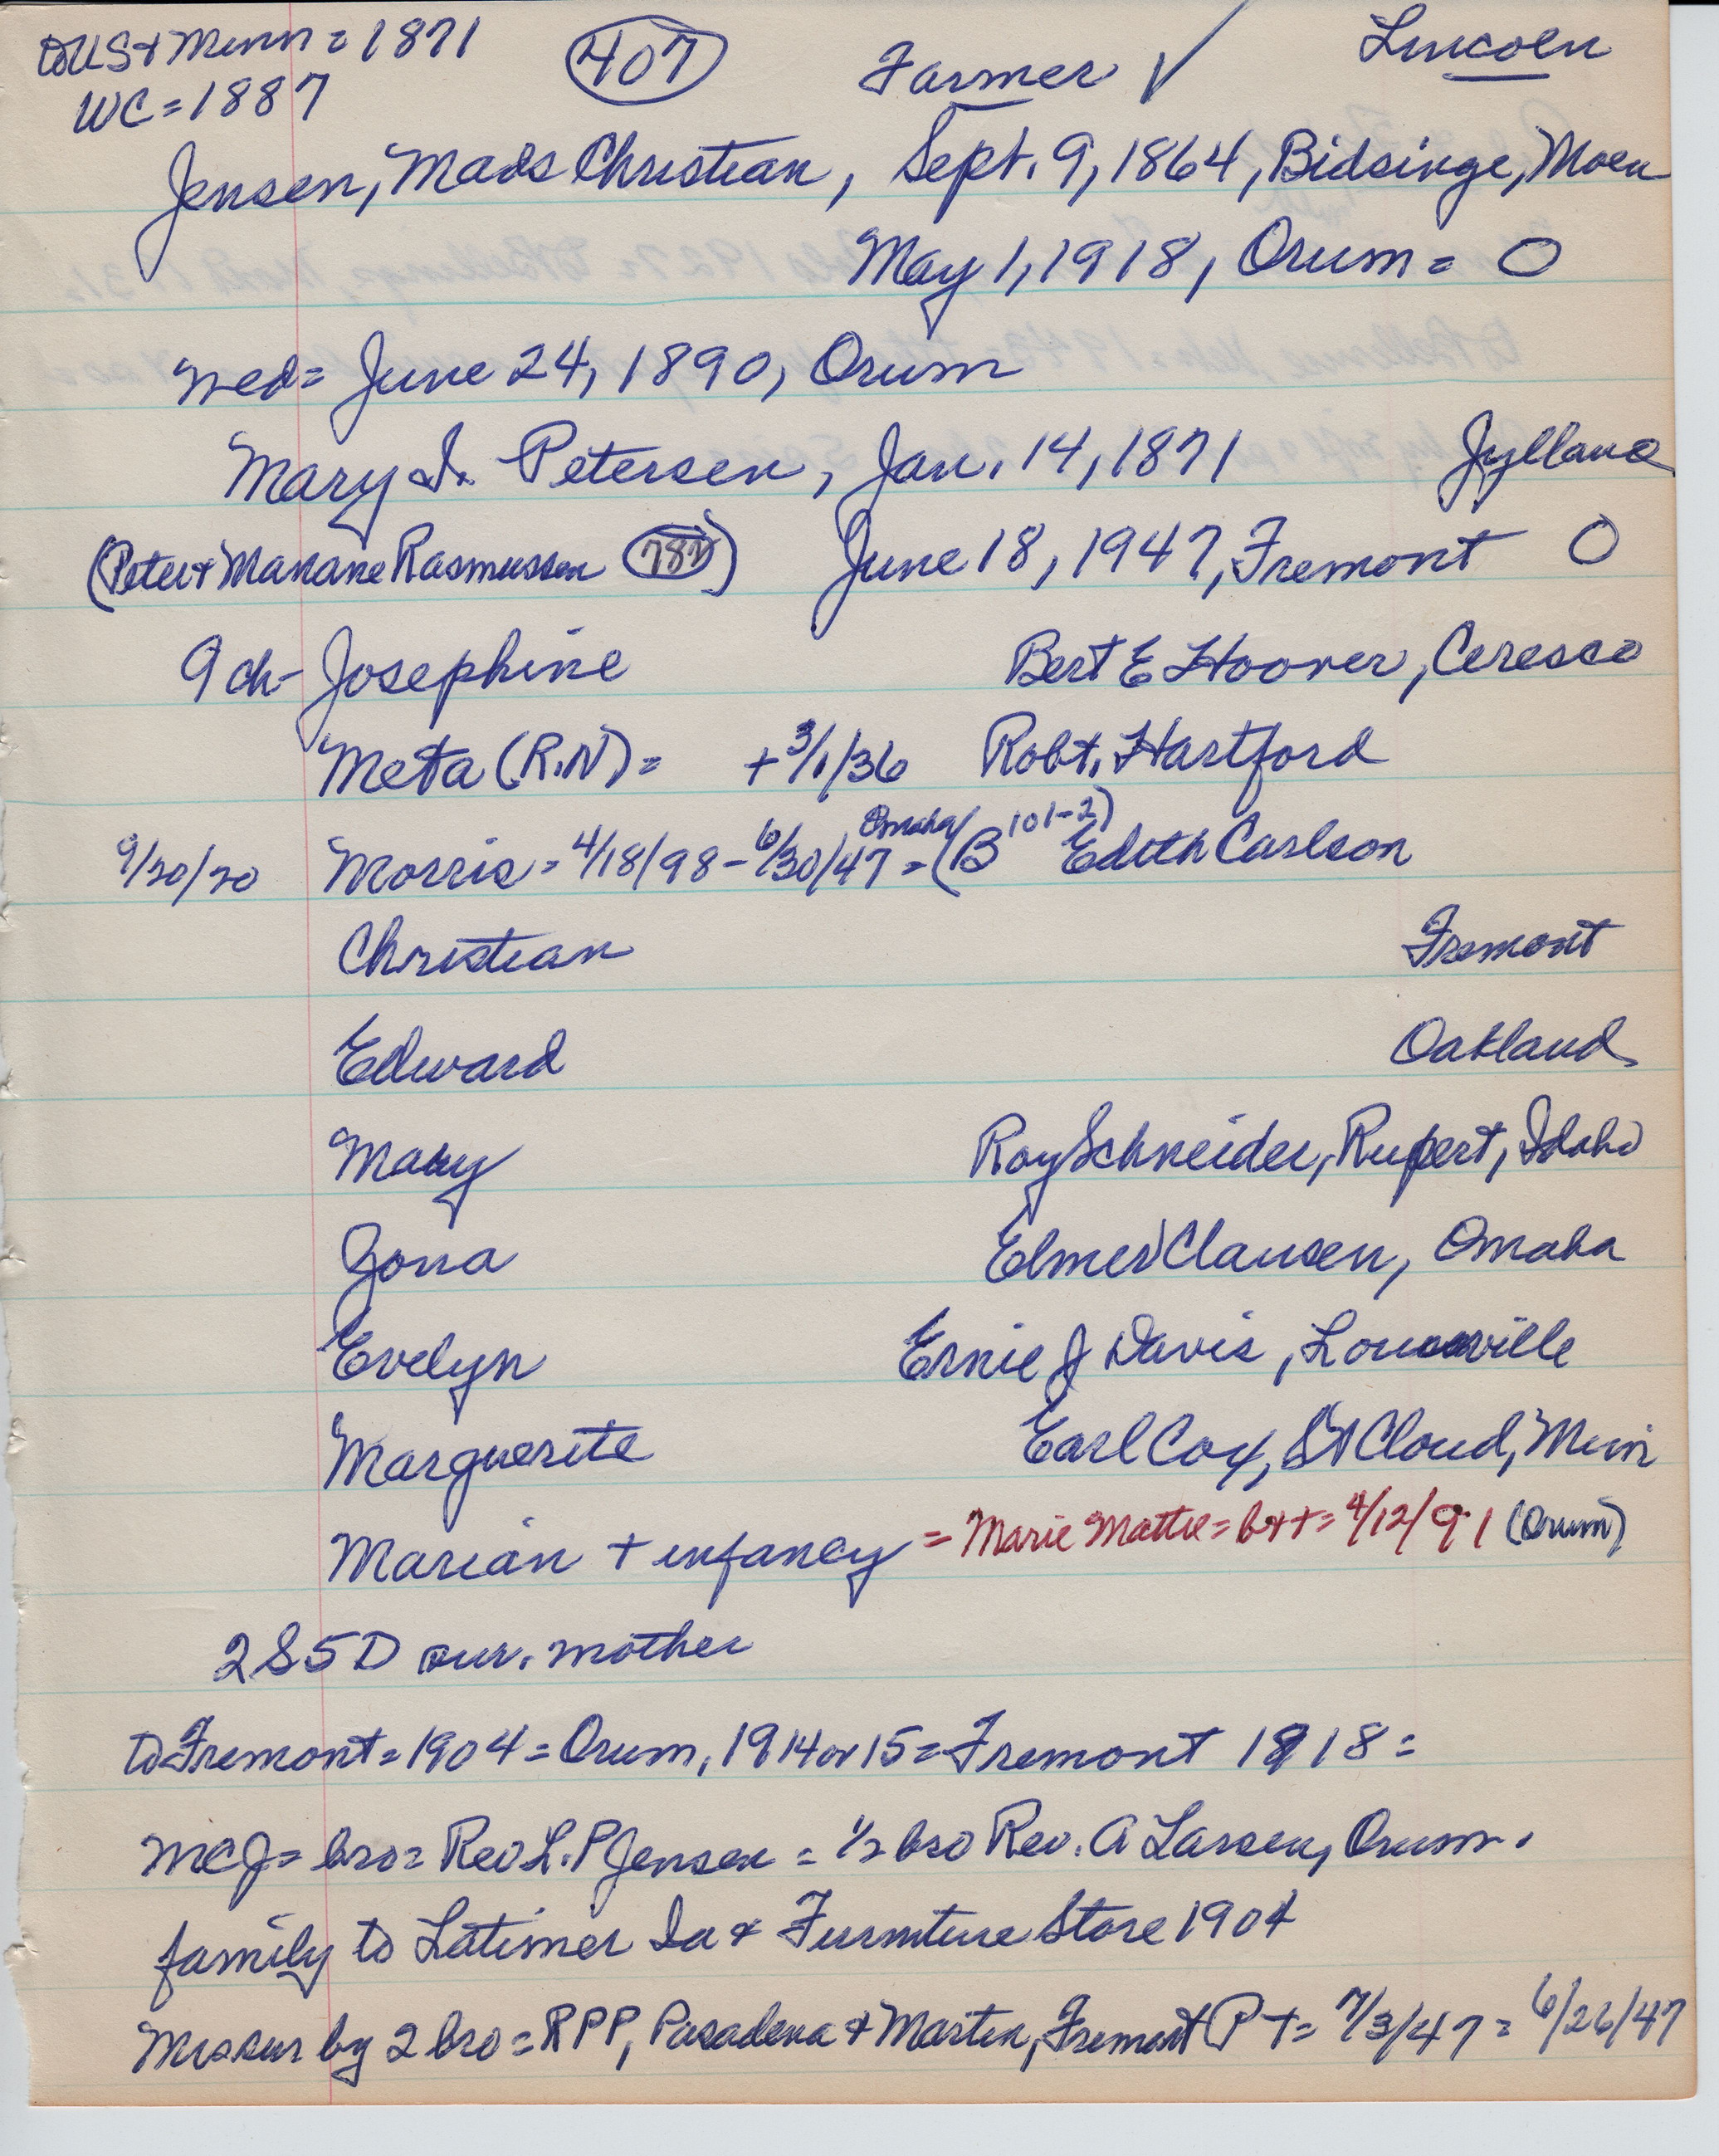 to US + Minn = 1871 (407) Farmer ✓ Lincoln
WC = 1887
Jensen, Mads Christian, Sept. 9, 1864, Bidsinge, Moen
May 1, 1918, Orum = O
wed = June 24, 1890, Orum
Mary I. Petersen, Jan. 14, 1871 Jylland
(Peter + Mariane Rasmussen (782)) June 18, 1947, Fremont O
9 ch - Josephine Bert E Hoover, Ceresco
Meta (R.N) = + 3/1/36 Robt. Hartford
Omaha
9/20/20 Morris = 4/18/98 - 6/30/47 = (B 101-2) Edith Carlson
Christian Fremont
Edward Oakland
Mary Roy Schneider, Rupert, Idaho
Zona Elmer Clausen, Omaha
Evelyn Ernie J Davis, Louisville
Marguerite Earl Cox, St Cloud, Minn
Marian + infancy = Marie Mattie = b + + = 4/12/91 (Orum)
2 S 5 D sur. mother
to Fremont = 1904 = Orum, 1914 or 15 = Fremont 1918 =
MCJ = bro = Rev L. P Jensen = 1/2 bro Rev. A Larsen, Orum.
family to Latimer Ia + Furniture Store 1904
Mrs sur by 2 bro = RPP, Pasadena + Martin, Fremont P T = 7/3/47 = 6/26/47